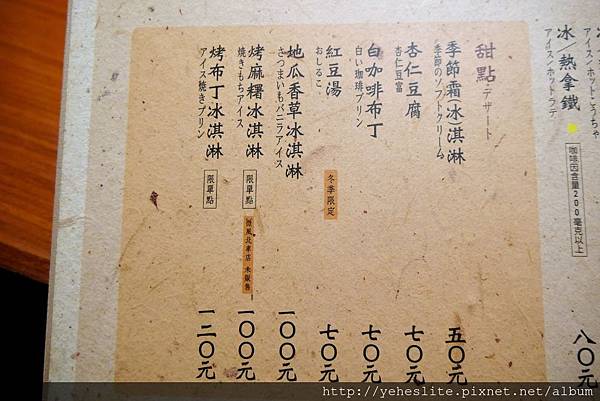 冰／熱拿鐵
アイス／ホットラテ
咖啡因含量200毫克以上
八〇元
甜點 デザート
季節霜(冰)淇淋
季節のソフトクリーム
五〇元
杏仁豆腐
杏仁豆富
七〇元
白咖啡布丁
白い珈琲プリン
七〇元
紅豆湯
おしるこ
冬季限定
七〇元
地瓜香草冰淇淋
さつまいもバニラアイス
一〇〇元
烤麻糬冰淇淋
焼きもちアイス
限單點
微風北車店 未販售
一〇〇元
烤布丁冰淇淋
アイス焼きプリン
限單點
一二〇元
http://yeheslite.pixnet.net/album